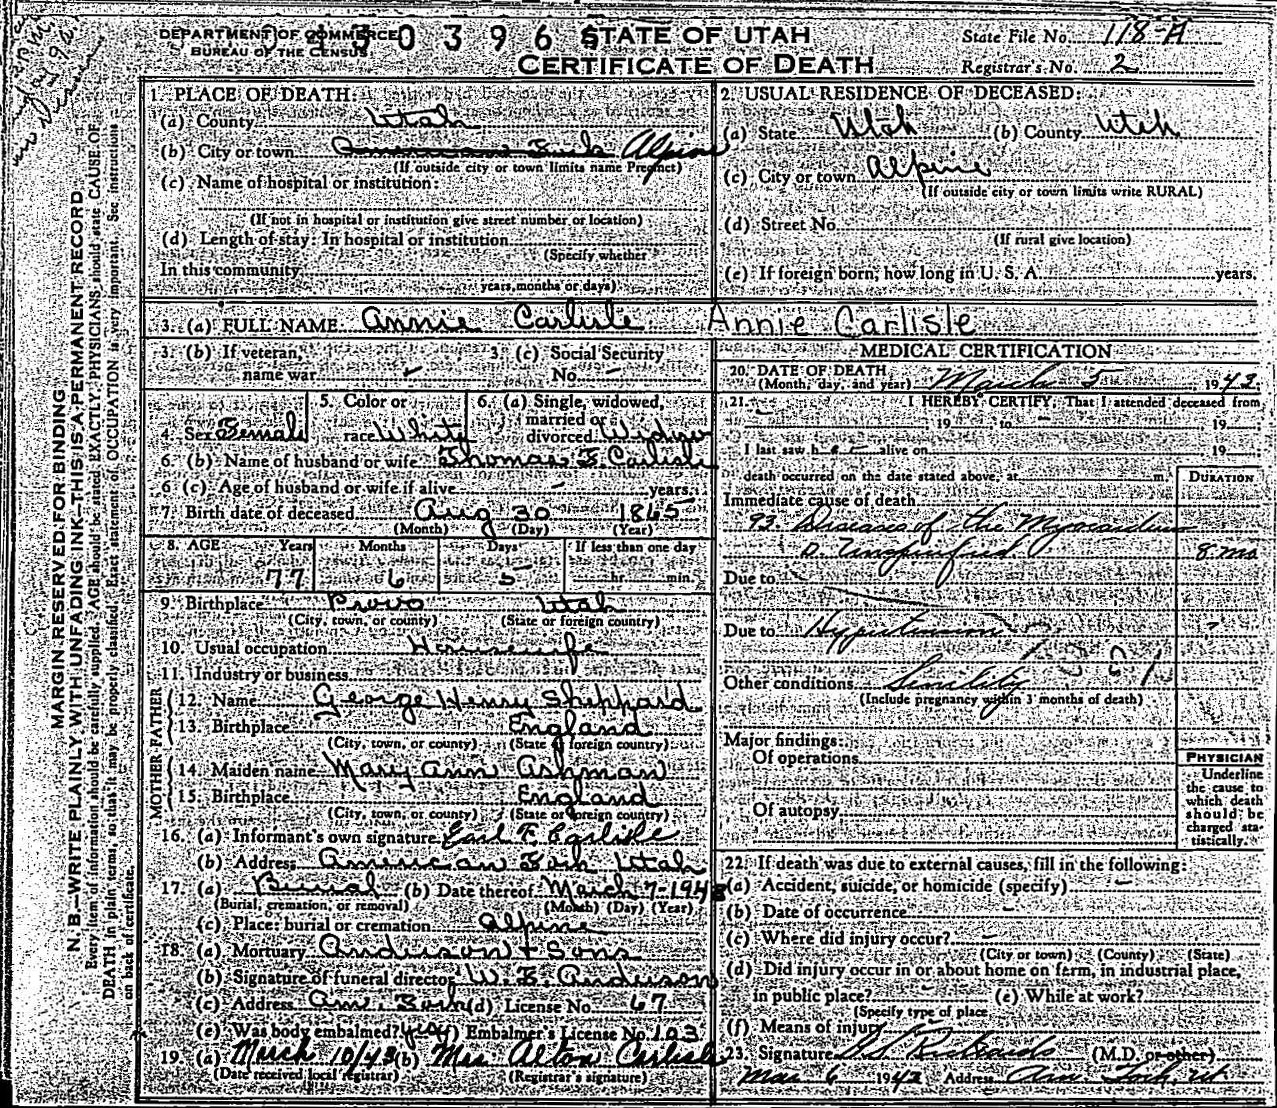 DEPARTMENT OF COMMERCE
BUREAU OF THE CENSUS
STATE OF UTAH
CERTIFICATE OF DEATH
State File No. 118-A
Registrar's No. 2
MARGIN RESERVED FOR BINDING
N. B.—WRITE PLAINLY WITH UNFADING INK—THIS IS A PERMANENT RECORD
Every item of information should be carefully supplied. AGE should be stated EXACTLY. PHYSICIANS should state CAUSE OF
DEATH in plain terms, so that it may be properly classified. Exact statement of OCCUPATION is very important. See instructions
on back of certificate.
1. PLACE OF DEATH:
(a) County Utah
(b) City or town American Fork Alpine
(If outside city or town limits name Precinct)
(c) Name of hospital or institution:
(If not in hospital or institution give street number or location)
(d) Length of stay: In hospital or institution
(Specify whether
In this community
years, months or days)
2. USUAL RESIDENCE OF DECEASED:
(a) State Utah (b) County Utah
(c) City or town Alpine
(If outside city or town limits write RURAL)
(d) Street No.
(If rural give location)
(e) If foreign born, how long in U. S. A. years.
3. (a) FULL NAME Annie Carlisle Annie Carlisle
3. (b) If veteran,
name war -
3. (c) Social Security
No. -
4. Sex Female
5. Color or
race White
6. (a) Single, widowed,
married or
divorced Widow
6. (b) Name of husband or wife Thomas F. Carlisle
6 (c) Age of husband or wife if alive - years.
7. Birth date of deceased Aug 30 1865
(Month) (Day) (Year)
8. AGE Years Months Days If less than one day
77 6 5 hr. min.
9. Birthplace Provo Utah
(City, town, or county) (State or foreign country)
10. Usual occupation Housewife
11. Industry or business
FATHER
12. Name George Henry Sheppard
13. Birthplace England
(City, town, or county) (State or foreign country)
MOTHER
14. Maiden name Mary Ann Ashman
15. Birthplace England
(City, town, or county) (State or foreign country)
16. (a) Informant's own signature Earl F. Carlisle
(b) Address American Fork Utah
17. (a) Burial (b) Date thereof March 7-1943
(Burial, cremation, or removal) (Month) (Day) (Year)
(c) Place: burial or cremation Alpine
18. (a) Mortuary Anderson & Sons
(b) Signature of funeral director W. E. Anderson
(c) Address Am. Fork (d) License No. 67
(e) Was body embalmed? yes (f) Embalmer's License No. 103
19. (a) March 10/43 (b) Mrs Alton Carlisle
(Date received local registrar) (Registrar's signature)
MEDICAL CERTIFICATION
20. DATE OF DEATH
(Month, day, and year) March 5, 1943.
21. I HEREBY CERTIFY, That I attended deceased from
- 19 to - 19
I last saw her alive on 19
death occurred on the date stated above, at m.
DURATION
Immediate cause of death
93. Diseases of the Myocardium
D. Unspecified 8 mo
Due to
Due to Hypertension
Other conditions Senility
(Include pregnancy within 3 months of death)
Major findings:
Of operations
Of autopsy
PHYSICIAN
Underline
the cause to
which death
should be
charged sta-
tistically.
22. If death was due to external causes, fill in the following:
(a) Accident, suicide, or homicide (specify) -
(b) Date of occurrence -
(c) Where did injury occur? -
(City or town) (County) (State)
(d) Did injury occur in or about home on farm, in industrial place,
in public place? (e) While at work?
(Specify type of place
(f) Means of injury
23. Signature Richards (M.D. or other)
Mar 6 1943 Address Am. Fork, Ut